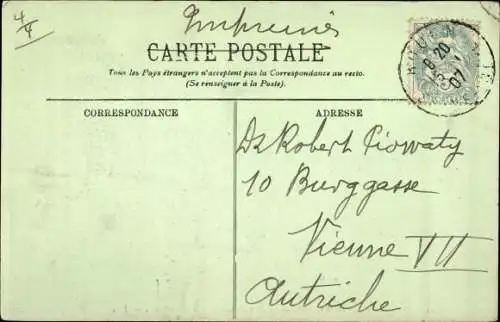 4/4
Imprimés
CARTE POSTALE
Tous les Pays étrangers n'acceptent pas la Correspondance au recto.
(Se renseigner à la Poste).
ROUEN
8 20
07
CORRESPONDANCE
ADRESSE
Dr Robert Piowaty
10 Burggasse
Vienne VII
Autriche